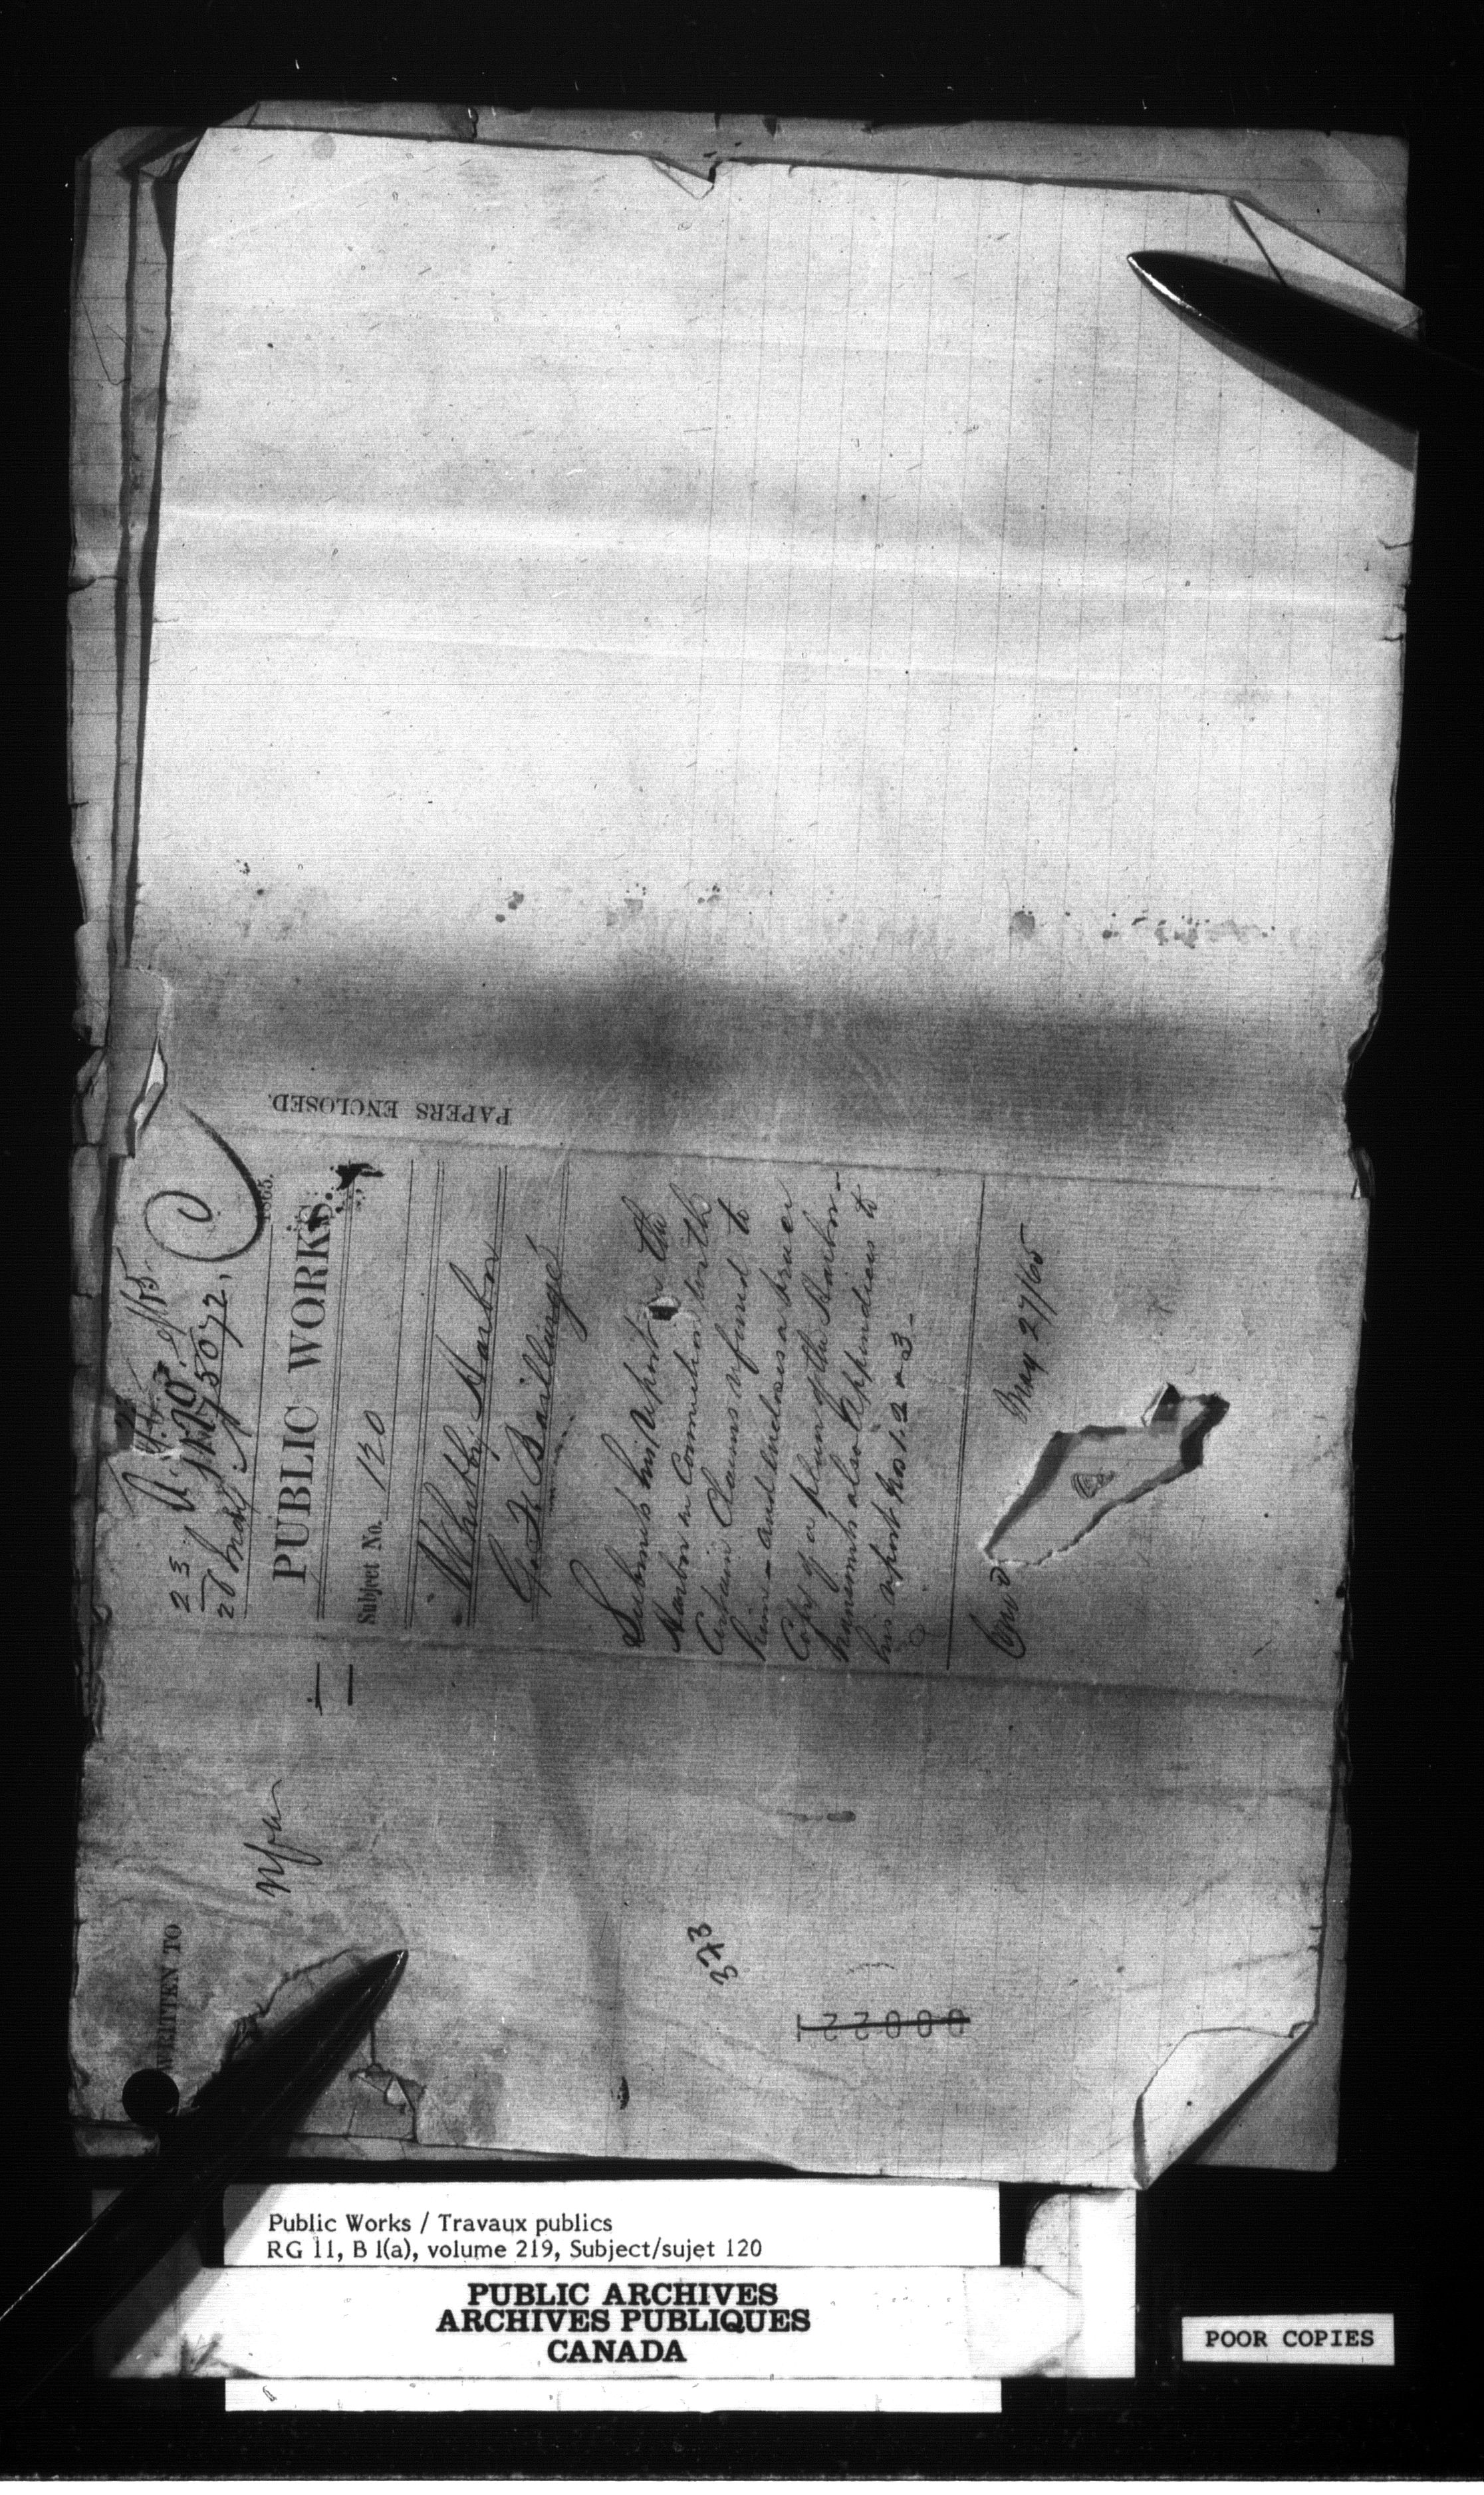 23
26 May
75072.
1865.
PUBLIC WORKS.
Subject No. 120
Whitby Harbor
G. F. Baillairgé
Submits his report on the
Harbor in Connection with
Certain Claims refund to
him - and encloses a tracer
Copy of a plan of the Harbor -
transmits also Appendices to
his report Nos 1. 2 & 3 -
May 27/65
PAPERS ENCLOSED.
WRITTEN TO
373
122000
Public Works / Travaux publics
RG 11, B 1(a), volume 219, Subject/sujet 120
PUBLIC ARCHIVES
ARCHIVES PUBLIQUES
CANADA
POOR COPIES